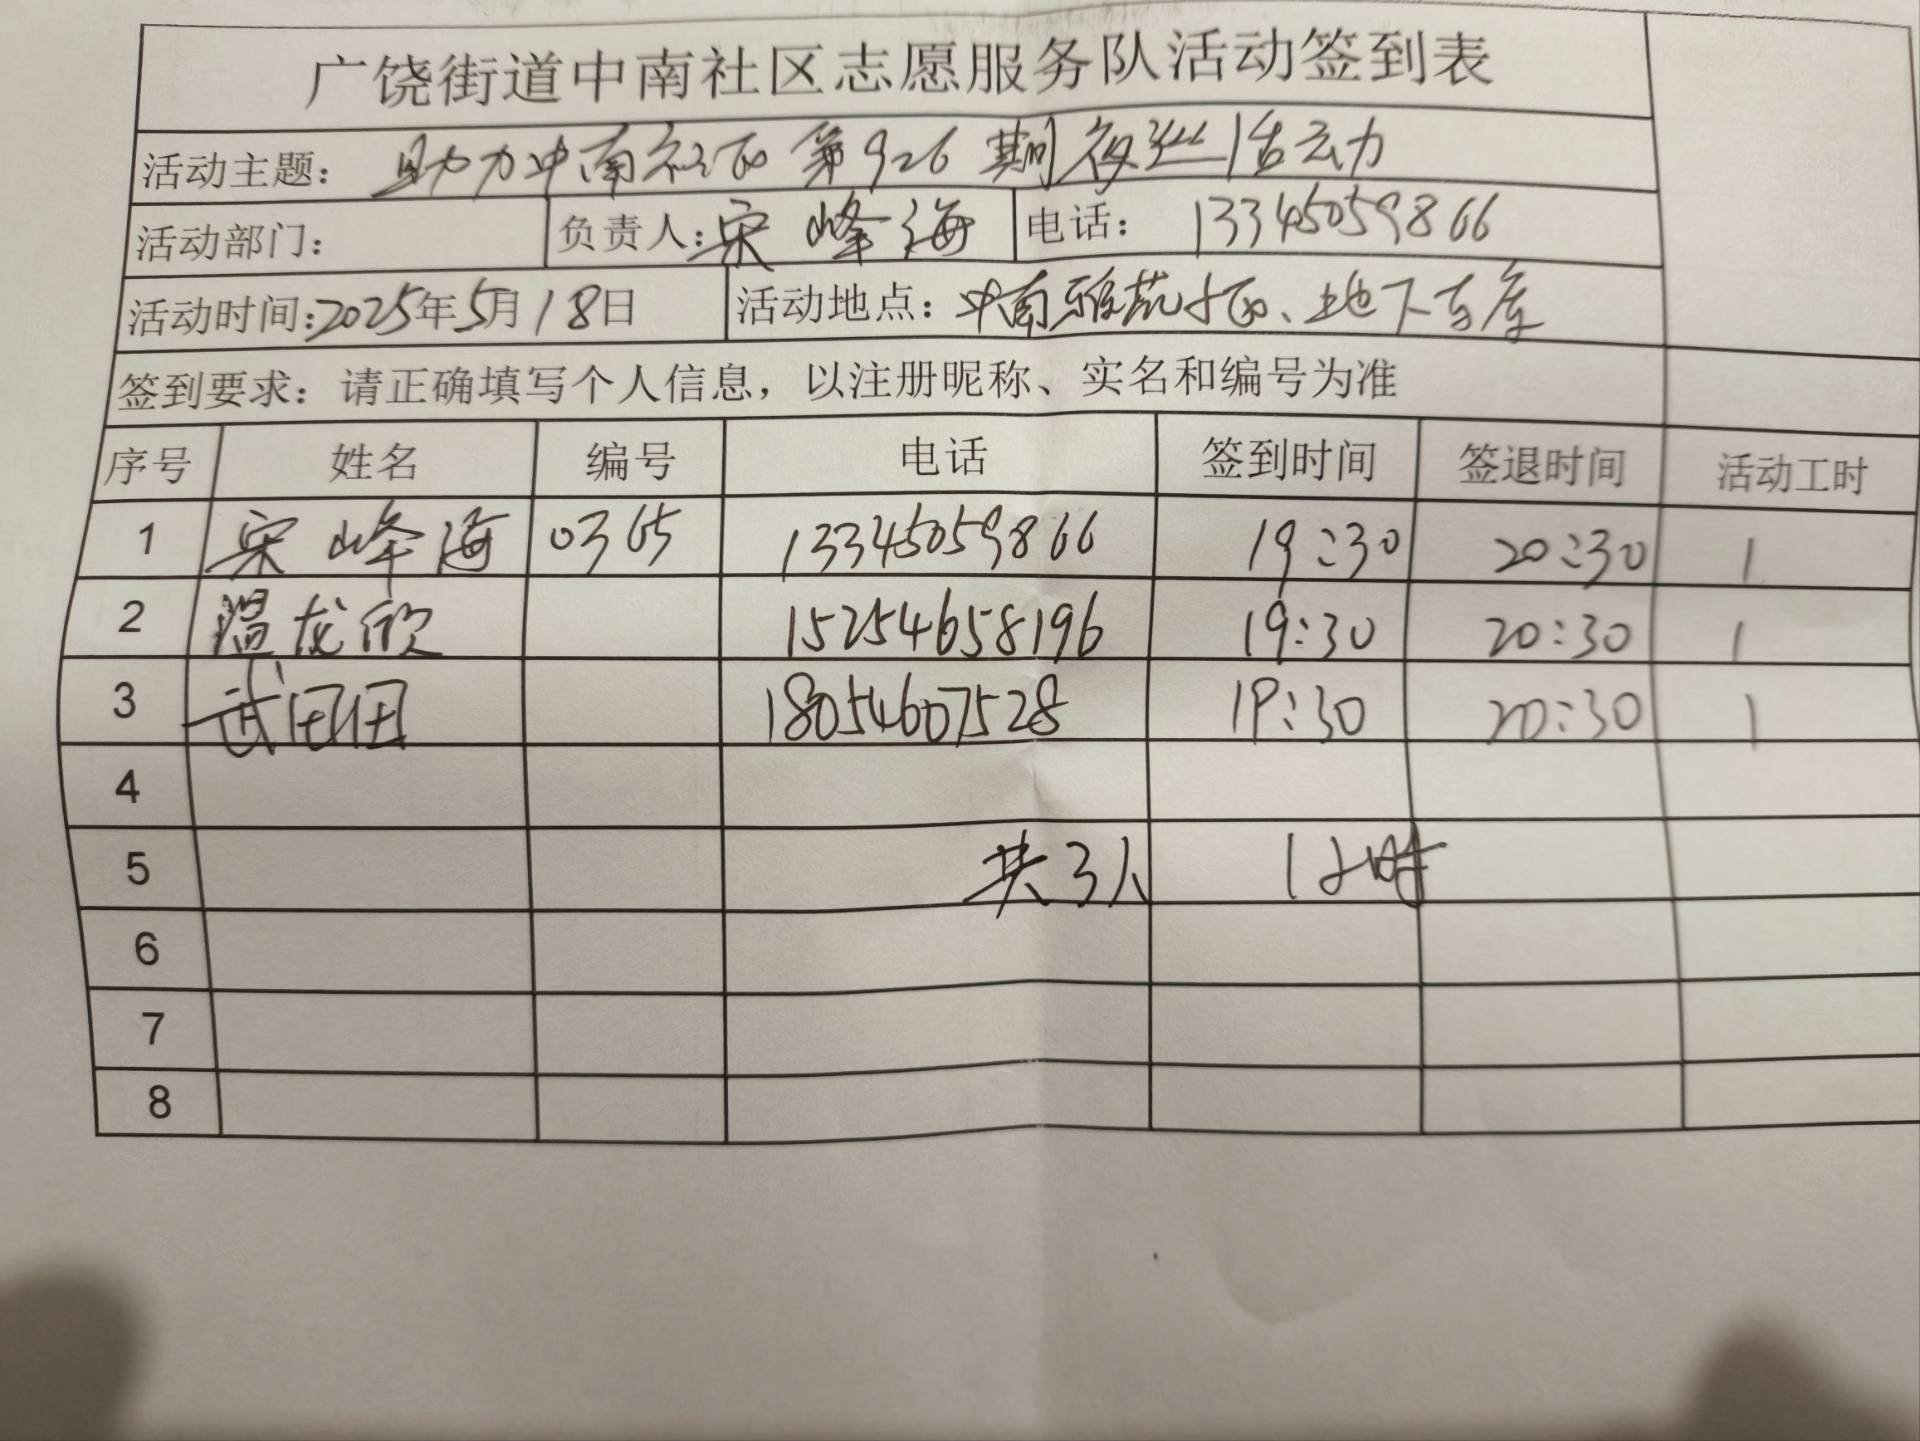 广饶街道中南社区志愿服务队活动签到表
活动主题： 助力中南社区第926期夜巡活动
活动部门： 负责人：宋峰海 电话： 13345059866
活动时间：2025年5月18日 活动地点：中南雅苑小区、地下车库
签到要求：请正确填写个人信息，以注册昵称、实名和编号为准
序号 姓名 编号 电话 签到时间 签退时间 活动工时
1 宋峰海 0365 13345059866 19:30 20:30 1
2 温龙欣 15254658196 19:30 20:30 1
3 武田田 18054607528 19:30 20:30 1
4
5 共3人 1小时
6
7
8